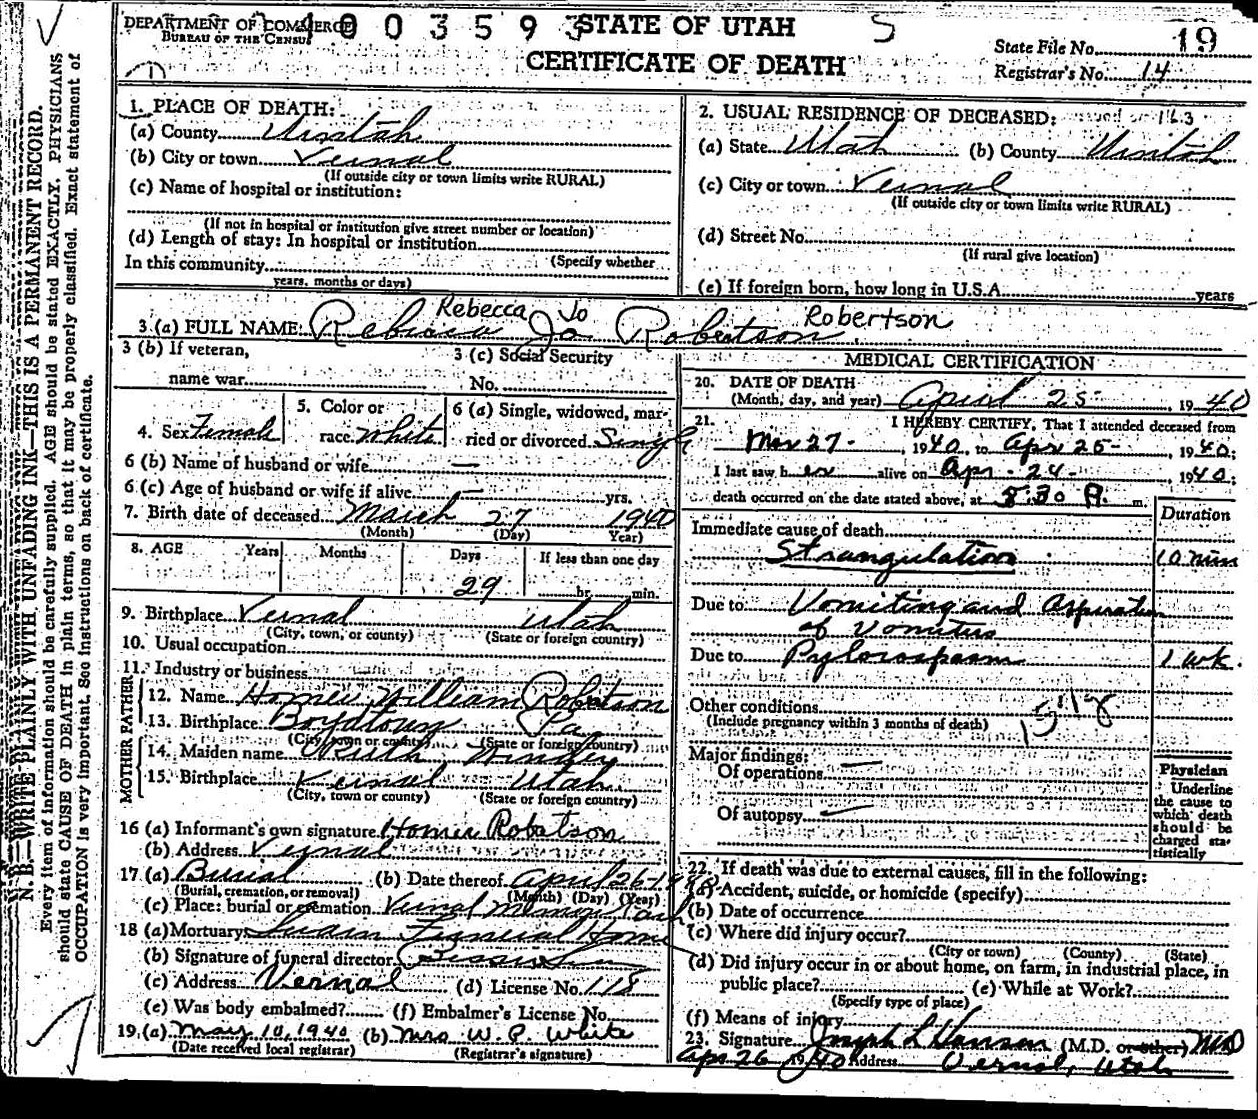 DEPARTMENT OF COMMERCE
BUREAU OF THE CENSUS
4003593
STATE OF UTAH
CERTIFICATE OF DEATH
State File No. 19
Registrar's No. 14
N. B.—WRITE PLAINLY WITH UNFADING INK—THIS IS A PERMANENT RECORD.
Every item of information should be carefully supplied. AGE should be stated EXACTLY. PHYSICIANS
should state CAUSE OF DEATH in plain terms, so that it may be properly classified. Exact statement of
OCCUPATION is very important. See instructions on back of certificate.
1. PLACE OF DEATH:
(a) County Uintah
(b) City or town Vernal
(If outside city or town limits write RURAL)
(c) Name of hospital or institution:
(If not in hospital or institution give street number or location)
(d) Length of stay: In hospital or institution
(Specify whether
In this community
years, months or days)
2. USUAL RESIDENCE OF DECEASED:
(a) State Utah (b) County Uintah
(c) City or town Vernal
(If outside city or town limits write RURAL)
(d) Street No.
(If rural give location)
(e) If foreign born, how long in U.S.A. years
Rebecca Jo Robertson
3 (a) FULL NAME: Rebecca Jo Robertson
3 (b) If veteran,
name war
3 (c) Social Security
No.
4. Sex Female
5. Color or
race White
6 (a) Single, widowed, mar-
ried or divorced Single
6 (b) Name of husband or wife —
6 (c) Age of husband or wife if alive — yrs.
7. Birth date of deceased March 27 1940
(Month) (Day) Year)
8. AGE Years Months Days If less than one day
29 hr. min.
9. Birthplace Vernal Utah
(City, town, or county) (State or foreign country)
10. Usual occupation
11. Industry or business
FATHER
12. Name Homer William Robertson
13. Birthplace Pa
(City, town or county) (State or foreign country)
MOTHER
14. Maiden name Ruth
15. Birthplace Vernal Utah
(City, town or county) (State or foreign country)
16 (a) Informant's own signature Homer Robertson
(b) Address Vernal
17. (a) Burial (b) Date thereof April 26-1940
(Burial, cremation, or removal) (Month) (Day) (Year)
(c) Place: burial or cremation Vernal Memorial Park
18 (a) Mortuary Funeral Home
(b) Signature of funeral director
(c) Address Vernal (d) License No. 118
(e) Was body embalmed? (f) Embalmer's License No.
19. (a) May 10, 1940 (b) Mrs W. P. White
(Date received local registrar) (Registrar's signature)
MEDICAL CERTIFICATION
20. DATE OF DEATH
(Month, day, and year) April 25, 1940
21. I HEREBY CERTIFY, That I attended deceased from
Mar 27- , 1940, to Apr 25- , 1940;
I last saw her alive on Apr. 24- 1940;
death occurred on the date stated above, at 8:30 A. m.
Duration
Immediate cause of death
Strangulation 10 min
Due to Vomiting and Aspiration
of Vomitus
Due to Pylorospasm 1 wk.
Other conditions
(Include pregnancy within 3 months of death)
Major findings:
Of operations —
Of autopsy —
Physician
Underline
the cause to
which death
should be
charged sta-
tistically
22. If death was due to external causes, fill in the following:
(a) Accident, suicide, or homicide (specify)
(b) Date of occurrence
(c) Where did injury occur?
(City or town) (County) (State)
(d) Did injury occur in or about home, on farm, in industrial place, in
public place? (e) While at Work?
(Specify type of place)
(f) Means of injury
23. Signature Joseph L Hansen (M.D. or other) MD
Apr 26 1940 Address Vernal, Utah